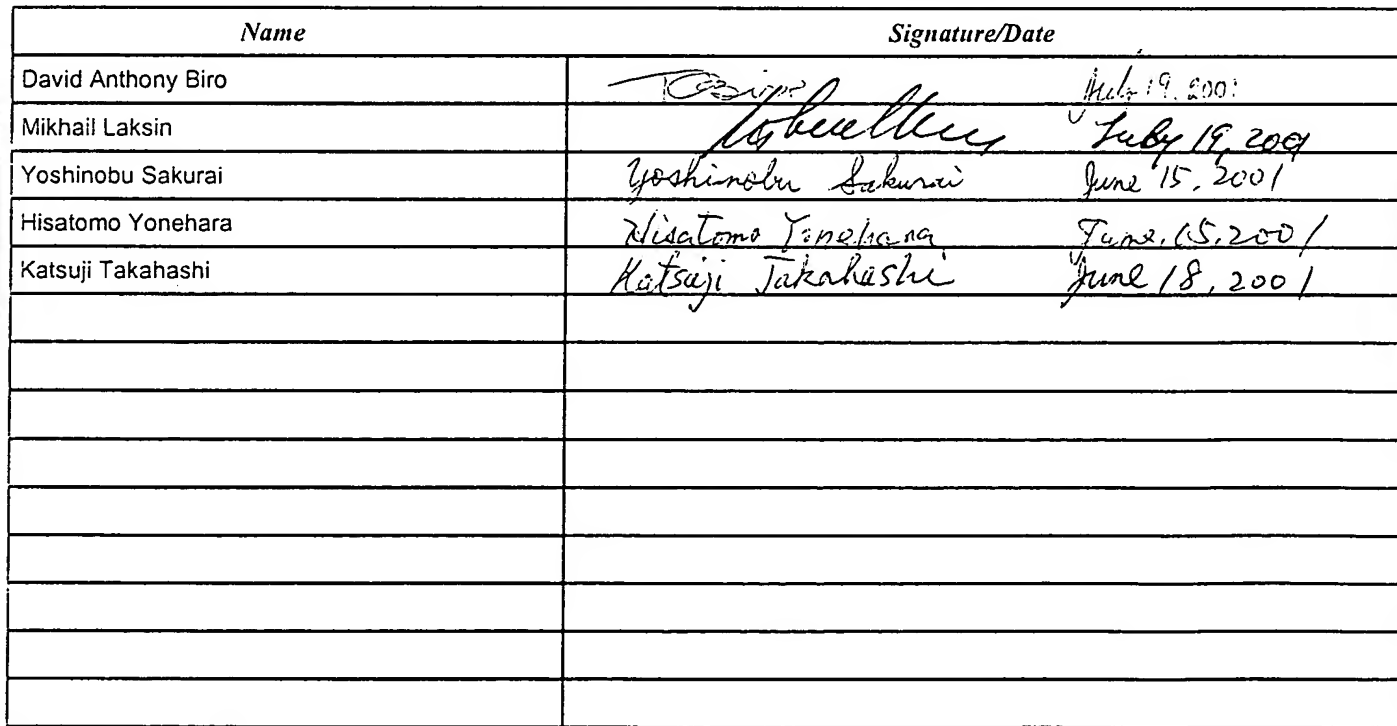 Name Signature/Date
David Anthony Biro July 19, 2001
Mikhail Laksin July 19, 2001
Yoshinobu Sakurai Yoshinobu Sakurai June 15, 2001
Hisatomo Yonehara Hisatomo Yonehara June, 15, 2001
Katsuji Takahashi Katsuji Takahashi June 18, 2001